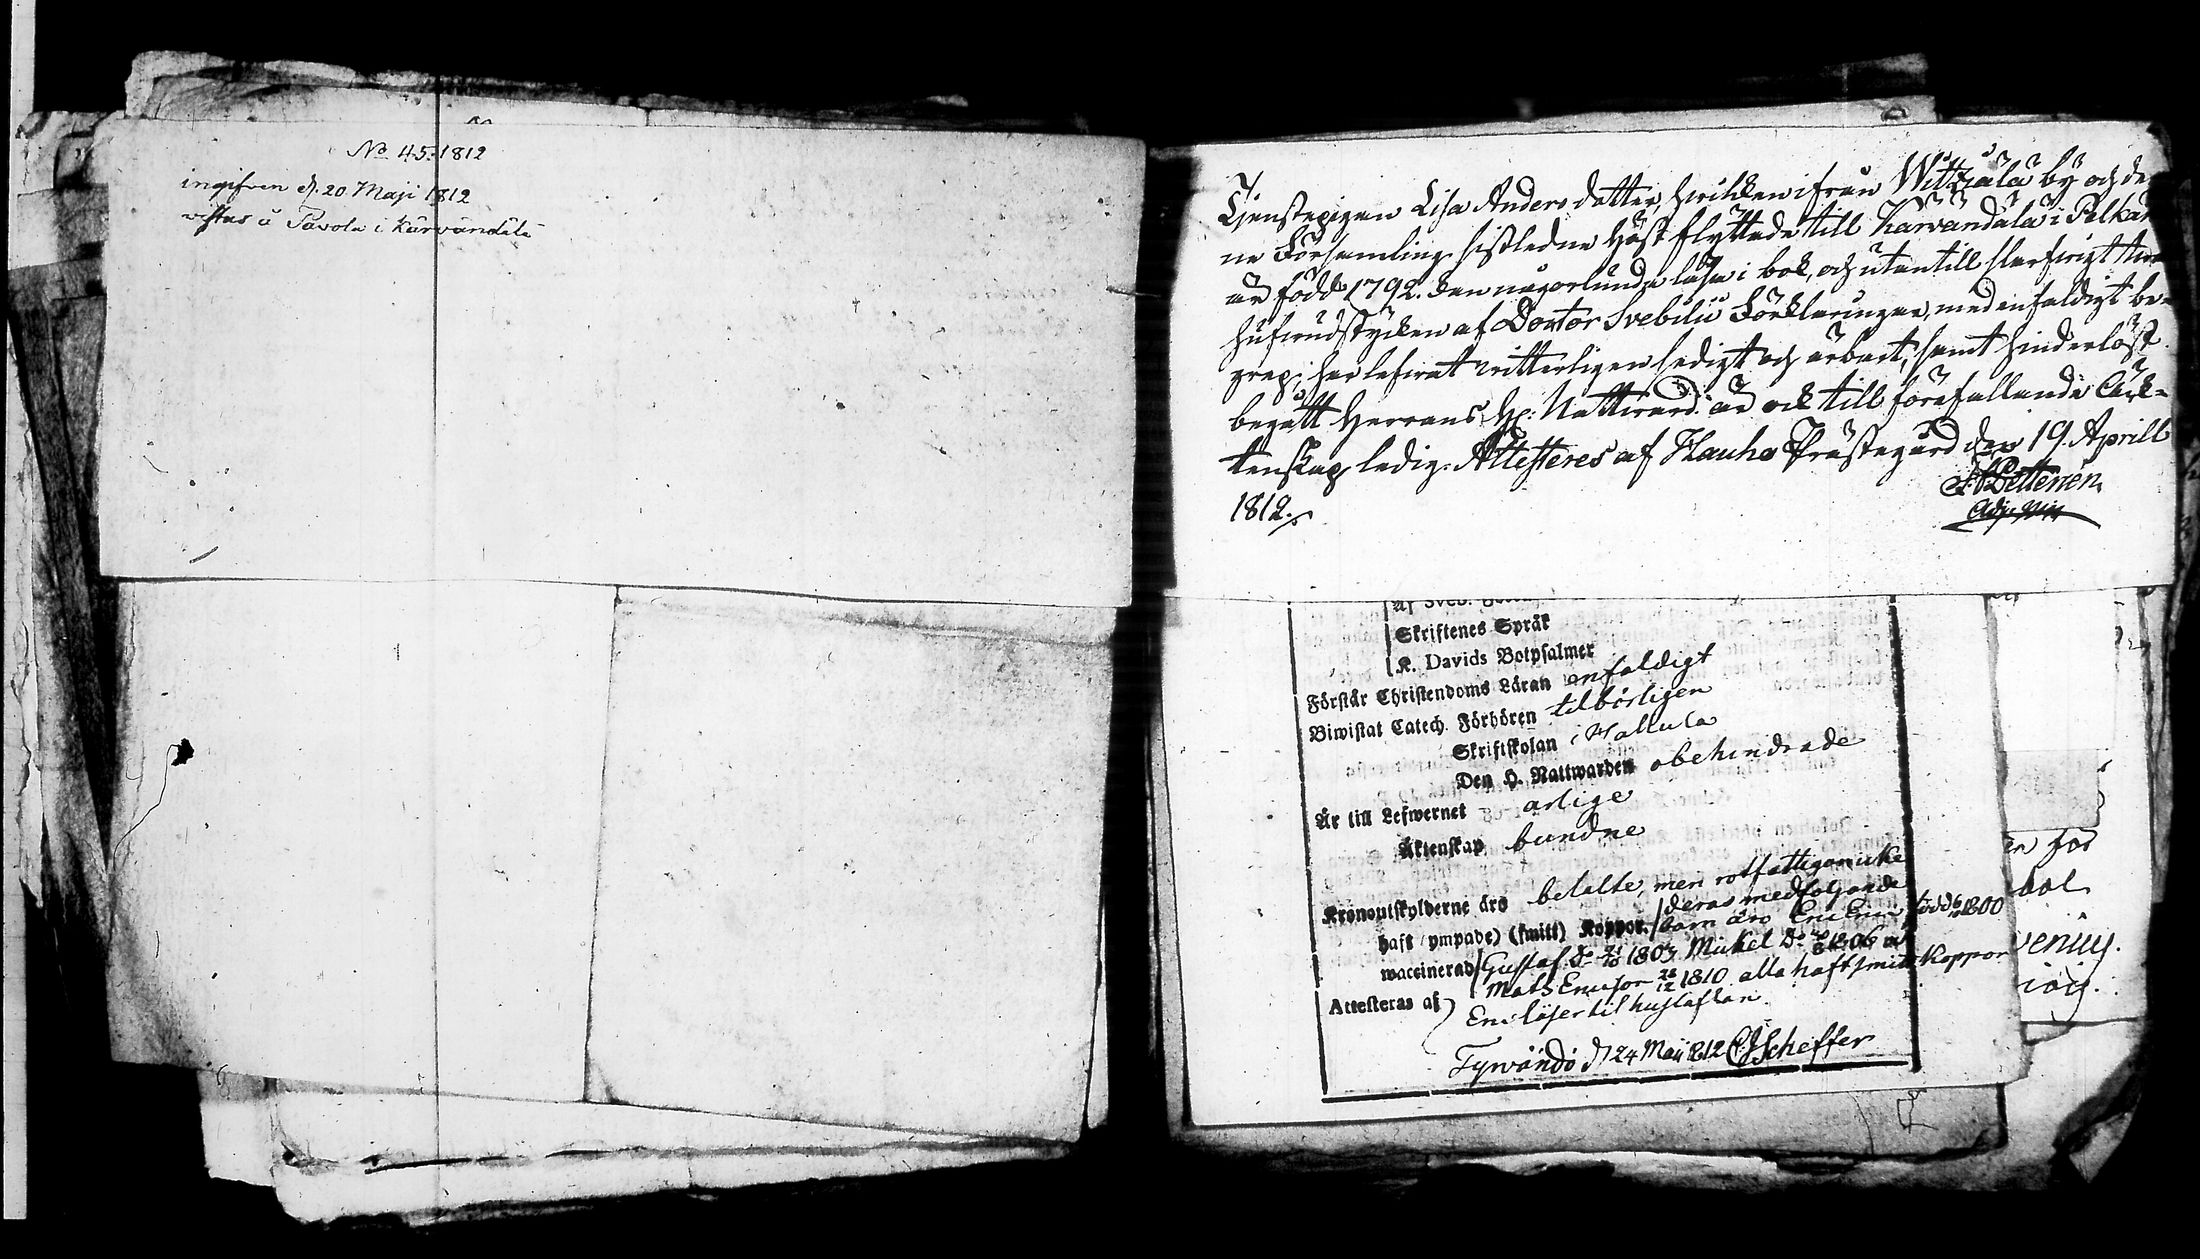 No 45. 1812
ingifven d. 20 Maji 1812
vistas å Pavola i Kärvändälä
Tjenstepigan Lisa Anders dotter, hvilken ifrån Wittsiälä by och de
ne Församling sistledne Höst flyttade till Kärvändälä i Pelkä
är född 1792. kan någorlunda läsa i bok, och utantill
hufvudstycken af Doctor Svebilii Förklaringar, med enfaldigt be-
grep; har lefvat vitterligen sedigt och ärbart, samt hinderlöst
begått Herrans H: Nattvard: är ock till förefallande Äck-
tenskap ledig. Attesteres af Hauho Prästegård den 19. Aprill
1812.
Petterien
Adj: Min
af Sveb.
Skriftenes Språk
K. Davids Botpsalmer
Förstår Christendoms Läran enfaldigt
Biwistat Catech. Förhören tilbörligen
Skriftskolan i Hallula
Den H. Nattwarden obehindrade
Är till Lefwernet arlige
Äktenskap bundne
Kronoutskylderne äro betalte, men rotfattigan icke
haft ympade) (smitt) Koppor. deras medfölgande
barn äro Eric Eric född 1800
waccinerad Gustaf Do 1803 Mickel Do 1806 o
Mats Ericsson 1810 alla haft smitt Koppor
Attesteras af Eric läser til hustaflan.
Tyrwändö d 24 Maii 1812 Scheffer
en för